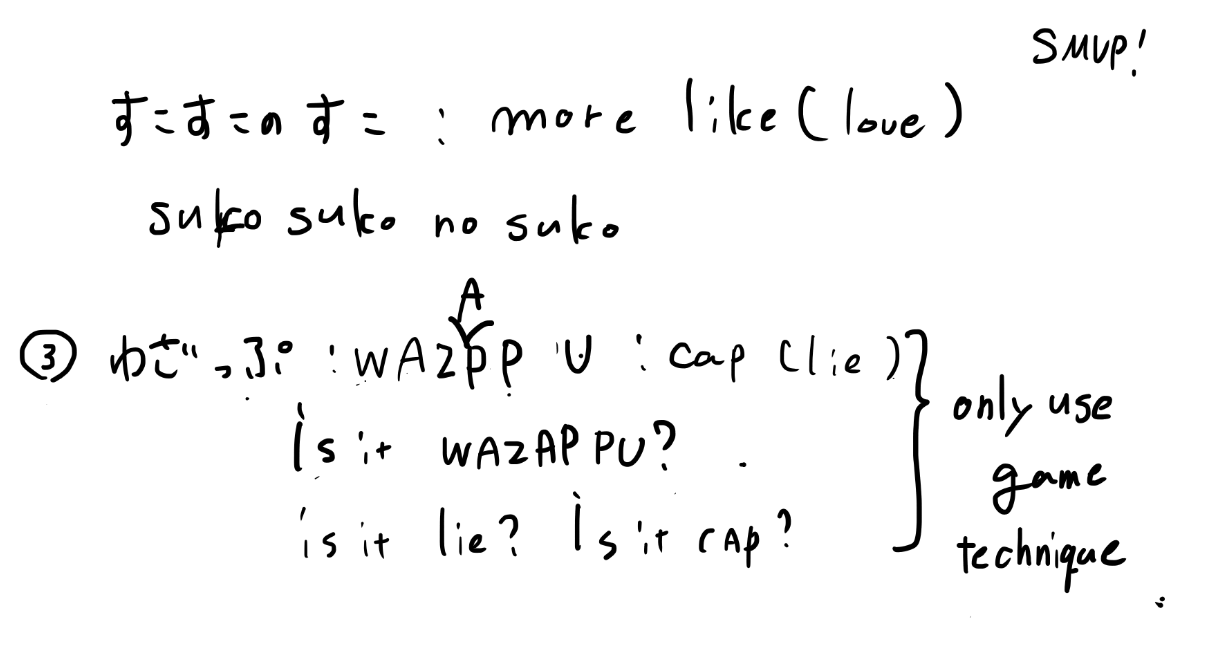 SMVP!
すこすこのすこ : more like (love)
suko suko no suko
③ わざっぷ : WAZAPPU : cap (lie)
Is it WAZAPPU?
is it lie? Is it cap?
only use
game
technique